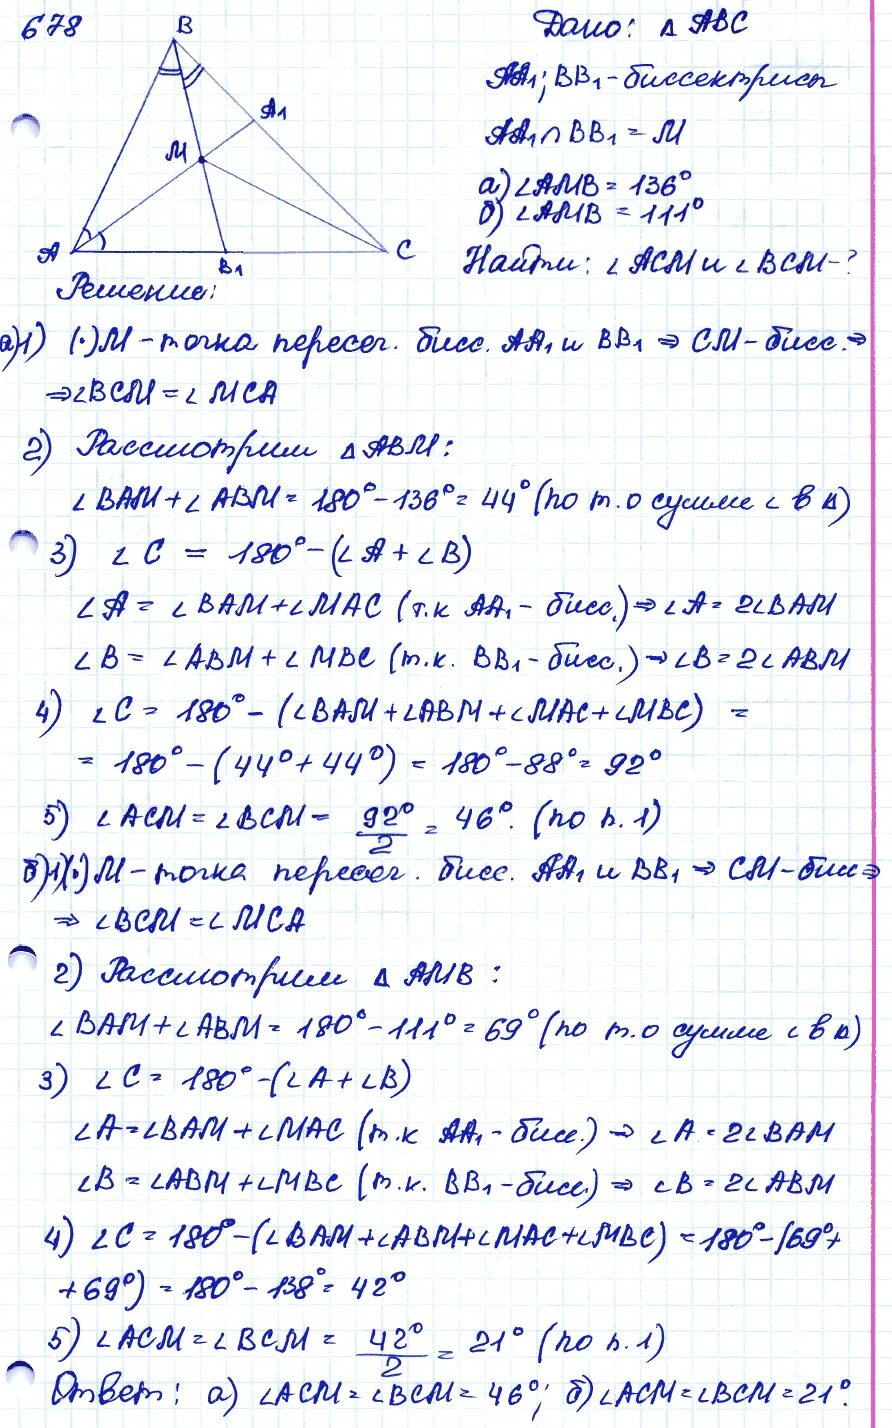 678
B
A1
M
A
B1
C
Дано: △ ABC
AA1; BB1 - биссектрисы
AA1 ∩ BB1 = M
а) ∠AMB = 136°
б) ∠AMB = 111°
Найти: ∠ACM и ∠BCM - ?
Решение:
а)1) (·)M - точка пересеч. бисс. AA1 и BB1 ⇒ CM - бисс. ⇒
⇒ ∠BCM = ∠MCA
2) Рассмотрим △ABM:
∠BAM + ∠ABM = 180° - 136° = 44° (по т.о сумме ∠ в △)
3) ∠C = 180° - (∠A + ∠B)
∠A = ∠BAM + ∠MAC (т.к AA1 - бисс.) ⇒ ∠A = 2∠BAM
∠B = ∠ABM + ∠MBC (т.к. BB1 - бисс.) → ∠B = 2∠ABM
4) ∠C = 180° - (∠BAM + ∠ABM + ∠MAC + ∠MBC) =
= 180° - (44° + 44°) = 180° - 88° = 92°
5) ∠ACM = ∠BCM = 92°/2 = 46°. (по п.1)
б)1)(·)M - точка пересеч. бисс. AA1 и BB1 ⇒ CM - бисс ⇒
⇒ ∠BCM = ∠MCA
2) Рассмотрим △ AMB:
∠BAM + ∠ABM = 180° - 111° = 69° (по т.о сумме ∠ в △)
3) ∠C = 180° - (∠A + ∠B)
∠A = ∠BAM + ∠MAC (т.к AA1 - бисс.) ⇒ ∠A = 2∠BAM
∠B = ∠ABM + ∠MBC (т.к. BB1 - бисс.) ⇒ ∠B = 2∠ABM
4) ∠C = 180° - (∠BAM + ∠ABM + ∠MAC + ∠MBC) = 180° - (69° +
+ 69°) = 180° - 138° = 42°
5) ∠ACM = ∠BCM = 42°/2 = 21° (по п.1)
Ответ: а) ∠ACM = ∠BCM = 46°; б) ∠ACM = ∠BCM = 21°.